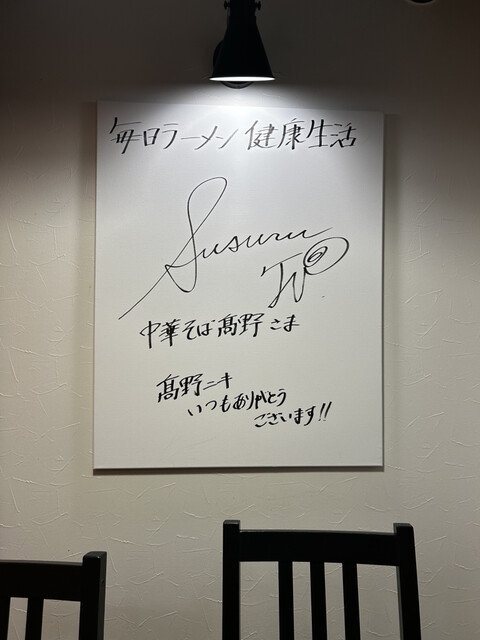 毎日ラーメン健康生活
Susuru
TV
中華そば髙野さま
髙野ニキ
いつもありがとう
ございます!!